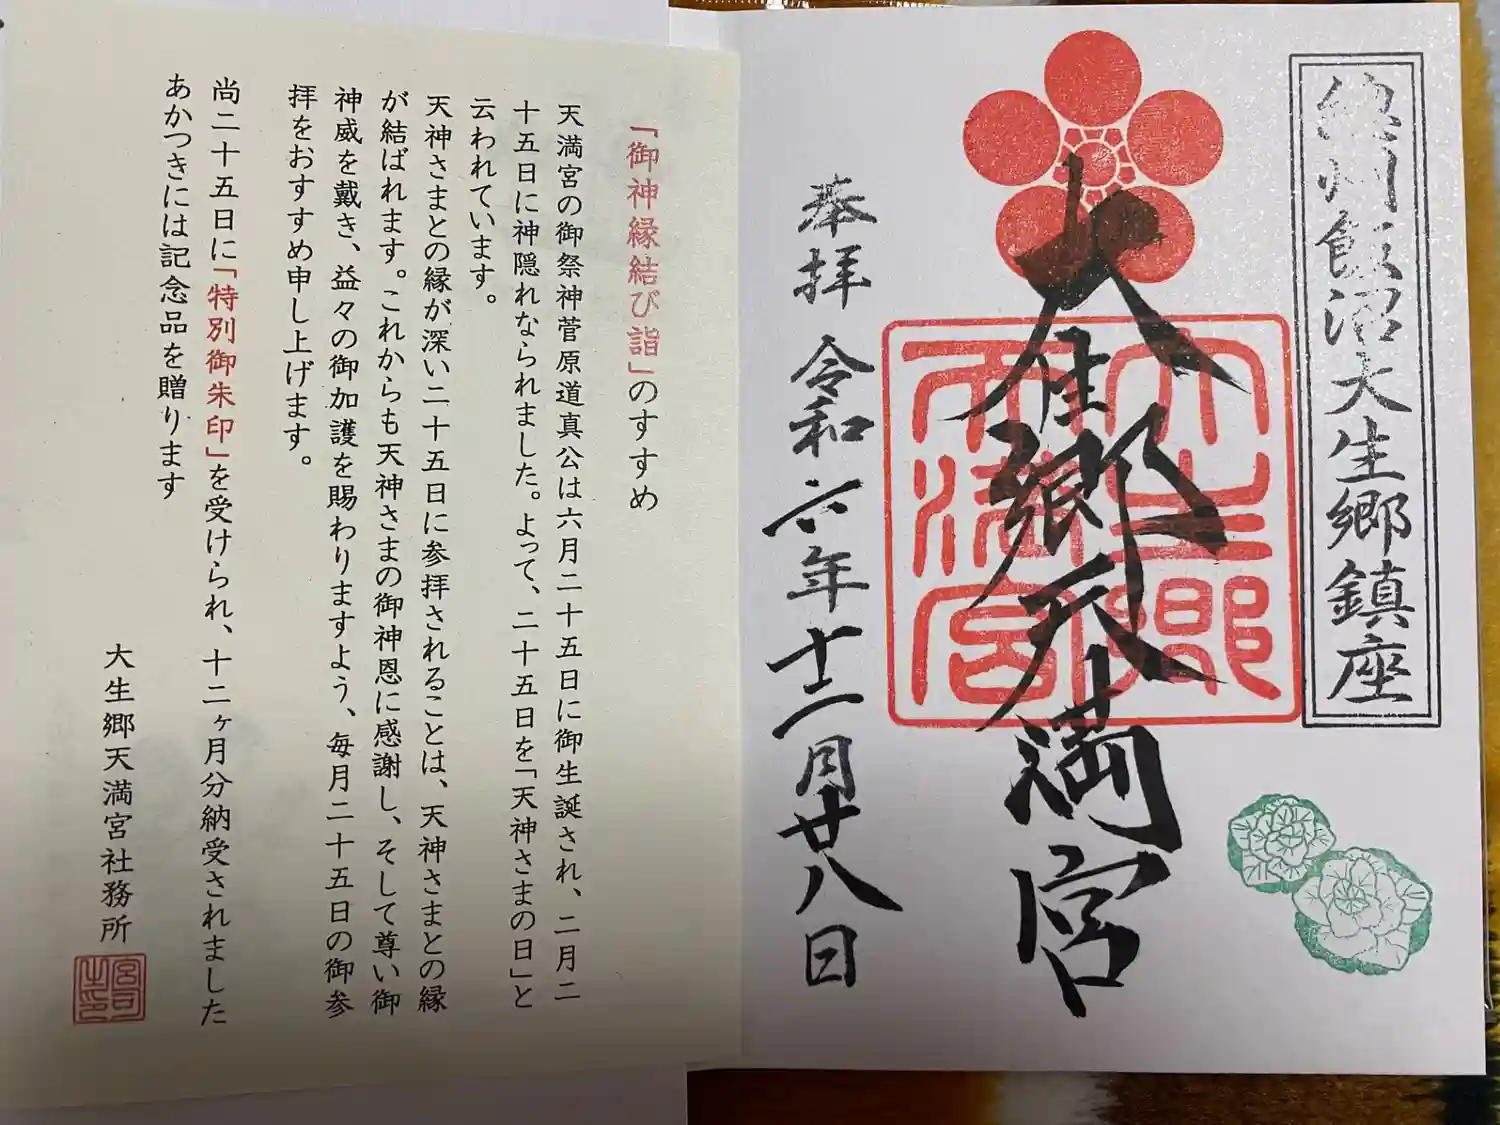 総州飯沼大生郷鎮座
大生郷天満宮
大生郷
天満宮
奉拝 令和六年十二月廿八日
「御神縁結び詣」のすすめ
天満宮の御祭神菅原道真公は六月二十五日に御生誕され、二月二
十五日に神隠れなられました。よって、二十五日を「天神さまの日」と
云われています。
天神さまとの縁が深い二十五日に参拝されることは、天神さまとの縁
が結ばれます。これからも天神さまの御神恩に感謝し、そして尊い御
神威を戴き、益々の御加護を賜わりますよう、毎月二十五日の御参
拝をおすすめ申し上げます。
尚二十五日に「特別御朱印」を受けられ、十二ヶ月分納受されました
あかつきには記念品を贈ります
大生郷天満宮社務所
宮司之印